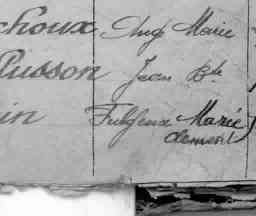 choux Aug Marie
Pusson Jean Bte
in Fulgence Marie
clement